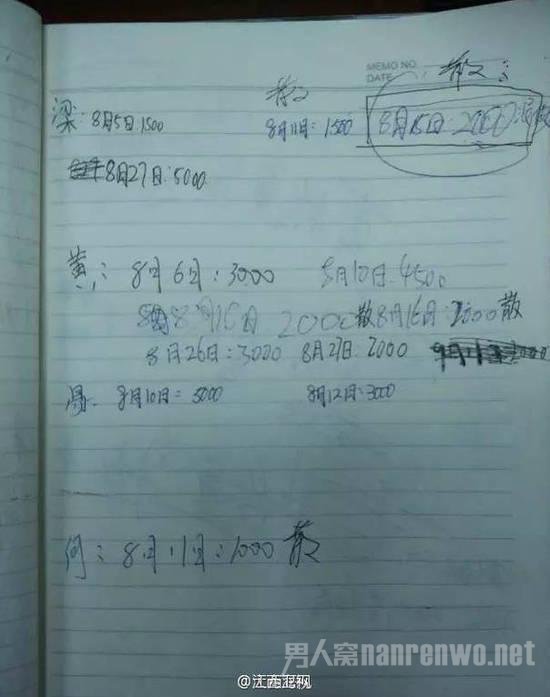 MEMO NO.
DATE
散 散:
梁:8月5日:1500 8月11日:1500 8月15日:2000
8月27日:5000
黄: 8月6日:3000 8月10日:4500
8月15日 2000散 8月16日:2000散
8月26日:3000 8月27日:2000
8月10日:5000 8月12日:3000
何: 8月11日:1000 散
男人窝nanrenwo.net